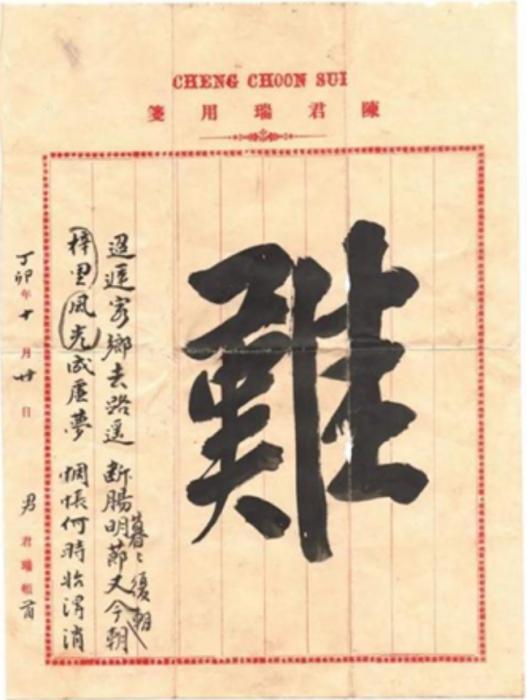 CHENG CHOON SUI
陳君瑞用箋
難
迢遞家鄉去路遥 断腸明節又今朝
暮〻復朝
梓里風光成虛夢 惆悵何時始得消
丁卯年十月廿日 男 君瑞